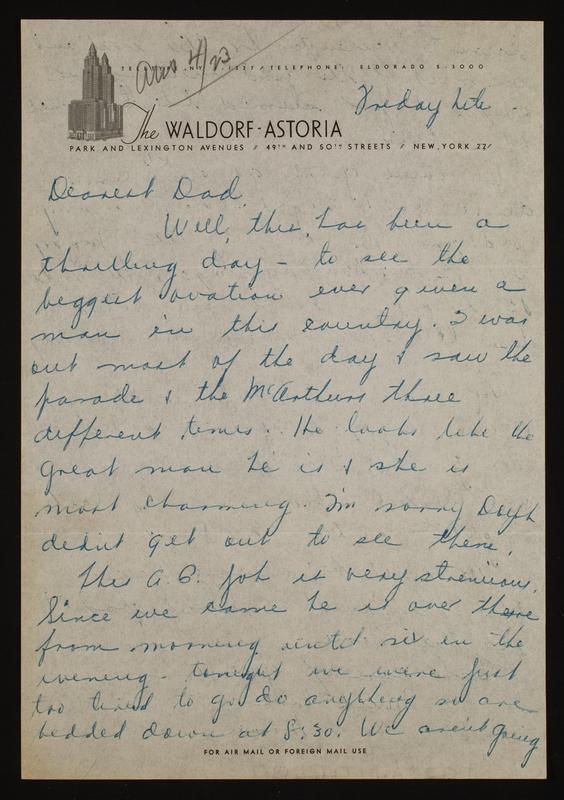 Ans 4/23
TELEPHONE ELDORADO 5-3000
Friday nite.
The WALDORF-ASTORIA
PARK AND LEXINGTON AVENUES // 49TH AND 50TH STREETS // NEW YORK 22
Dearest Dad,
Well, this has been a
thrilling day - to see the
biggest ovation ever given a
man in this country. I was
out most of the day & saw the
parade & the McArthurs three
different times. He looks like the
great man he is & she is
most charming. I'm sorry
didn't get out to see them.
This A.B. job is very strenuous.
Since we came he is over there
from morning until six in the
evening - tonight we were just
too tired to go do anything so are
bedded down at 8:30. We aren't going
FOR AIR MAIL OR FOREIGN MAIL USE